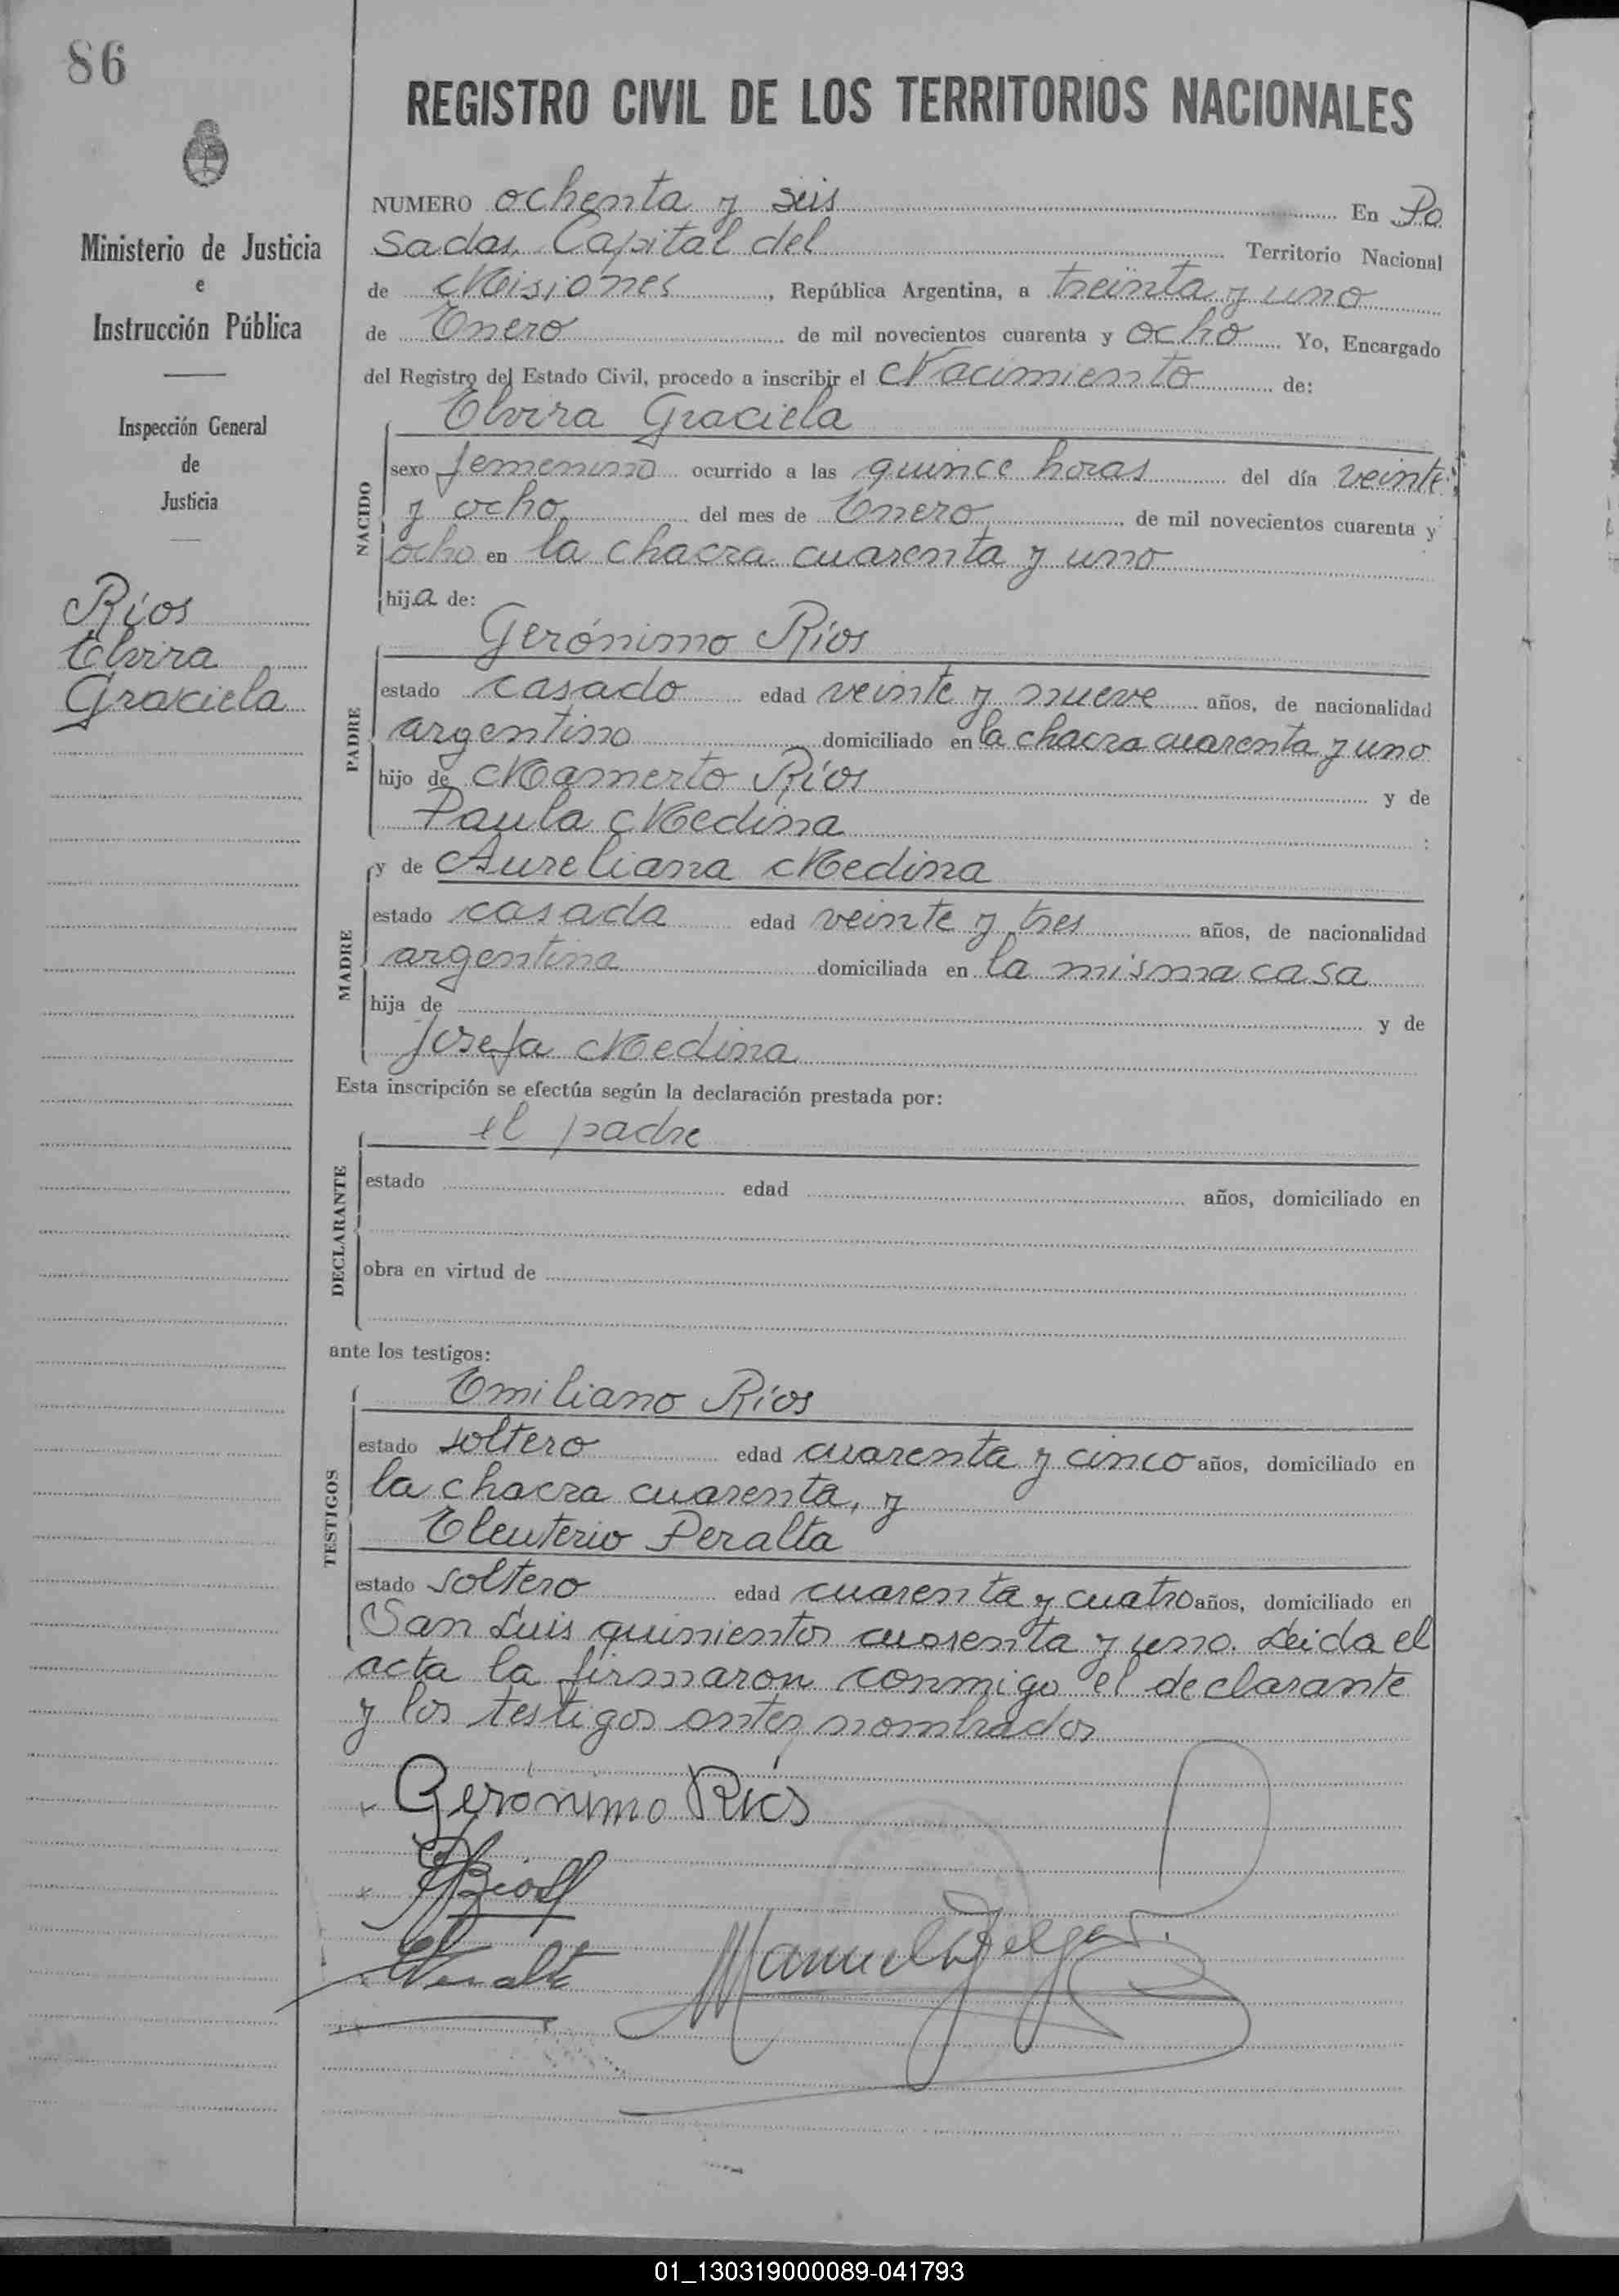 86
REGISTRO CIVIL DE LOS TERRITORIOS NACIONALES
Ministerio de Justicia
e
Instrucción Pública
Inspección General
de
Justicia
Ríos
Elvira
Graciela
NUMERO ochenta y seis En Po
sadas, Capital del Territorio Nacional
de Misiones, República Argentina, a treinta y uno
de Enero de mil novecientos cuarenta y ocho Yo, Encargado
del Registro del Estado Civil, procedo a inscribir el Nacimiento de:
Elvira Graciela
NACIDO
sexo femenino ocurrido a las quince horas del día veinte
y ocho del mes de Enero de mil novecientos cuarenta y
ocho en la chacra cuarenta y uno
hija de:
Gerónimo Ríos
PADRE
estado casado edad veinte y nueve años, de nacionalidad
argentino domiciliado en la chacra cuarenta y uno
hijo de Mamerto Ríos y de
Paula Medina
y de Aureliana Medina
MADRE
estado casada edad veinte y tres años, de nacionalidad
argentina domiciliada en la misma casa
hija de y de
Josefa Medina
Esta inscripción se efectúa según la declaración prestada por:
el padre
DECLARANTE
estado edad años, domiciliado en
obra en virtud de
ante los testigos:
Emiliano Ríos
TESTIGOS
estado soltero edad cuarenta y cinco años, domiciliado en
la chacra cuarenta, y
Eleuterio Peralta
estado soltero edad cuarenta y cuatro años, domiciliado en
San Luis quinientos cuarenta y uno. Leida el
acta la firmaron conmigo el declarante
y los testigos antes nombrados
Gerónimo Ríos
Ríos
Peralta
Manuel
01_130319000089-041793